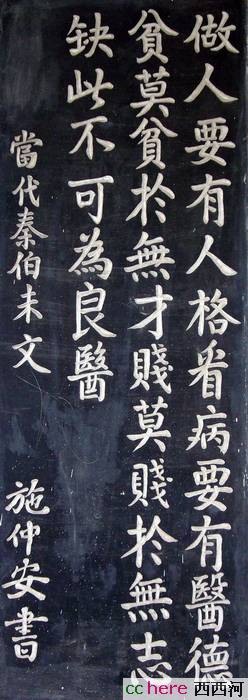 做人要有人格看病要有醫德
貧莫貧於無才賤莫賤於無志
缺此不可為良醫
當代秦伯未文
施仲安書
cchere 西西河